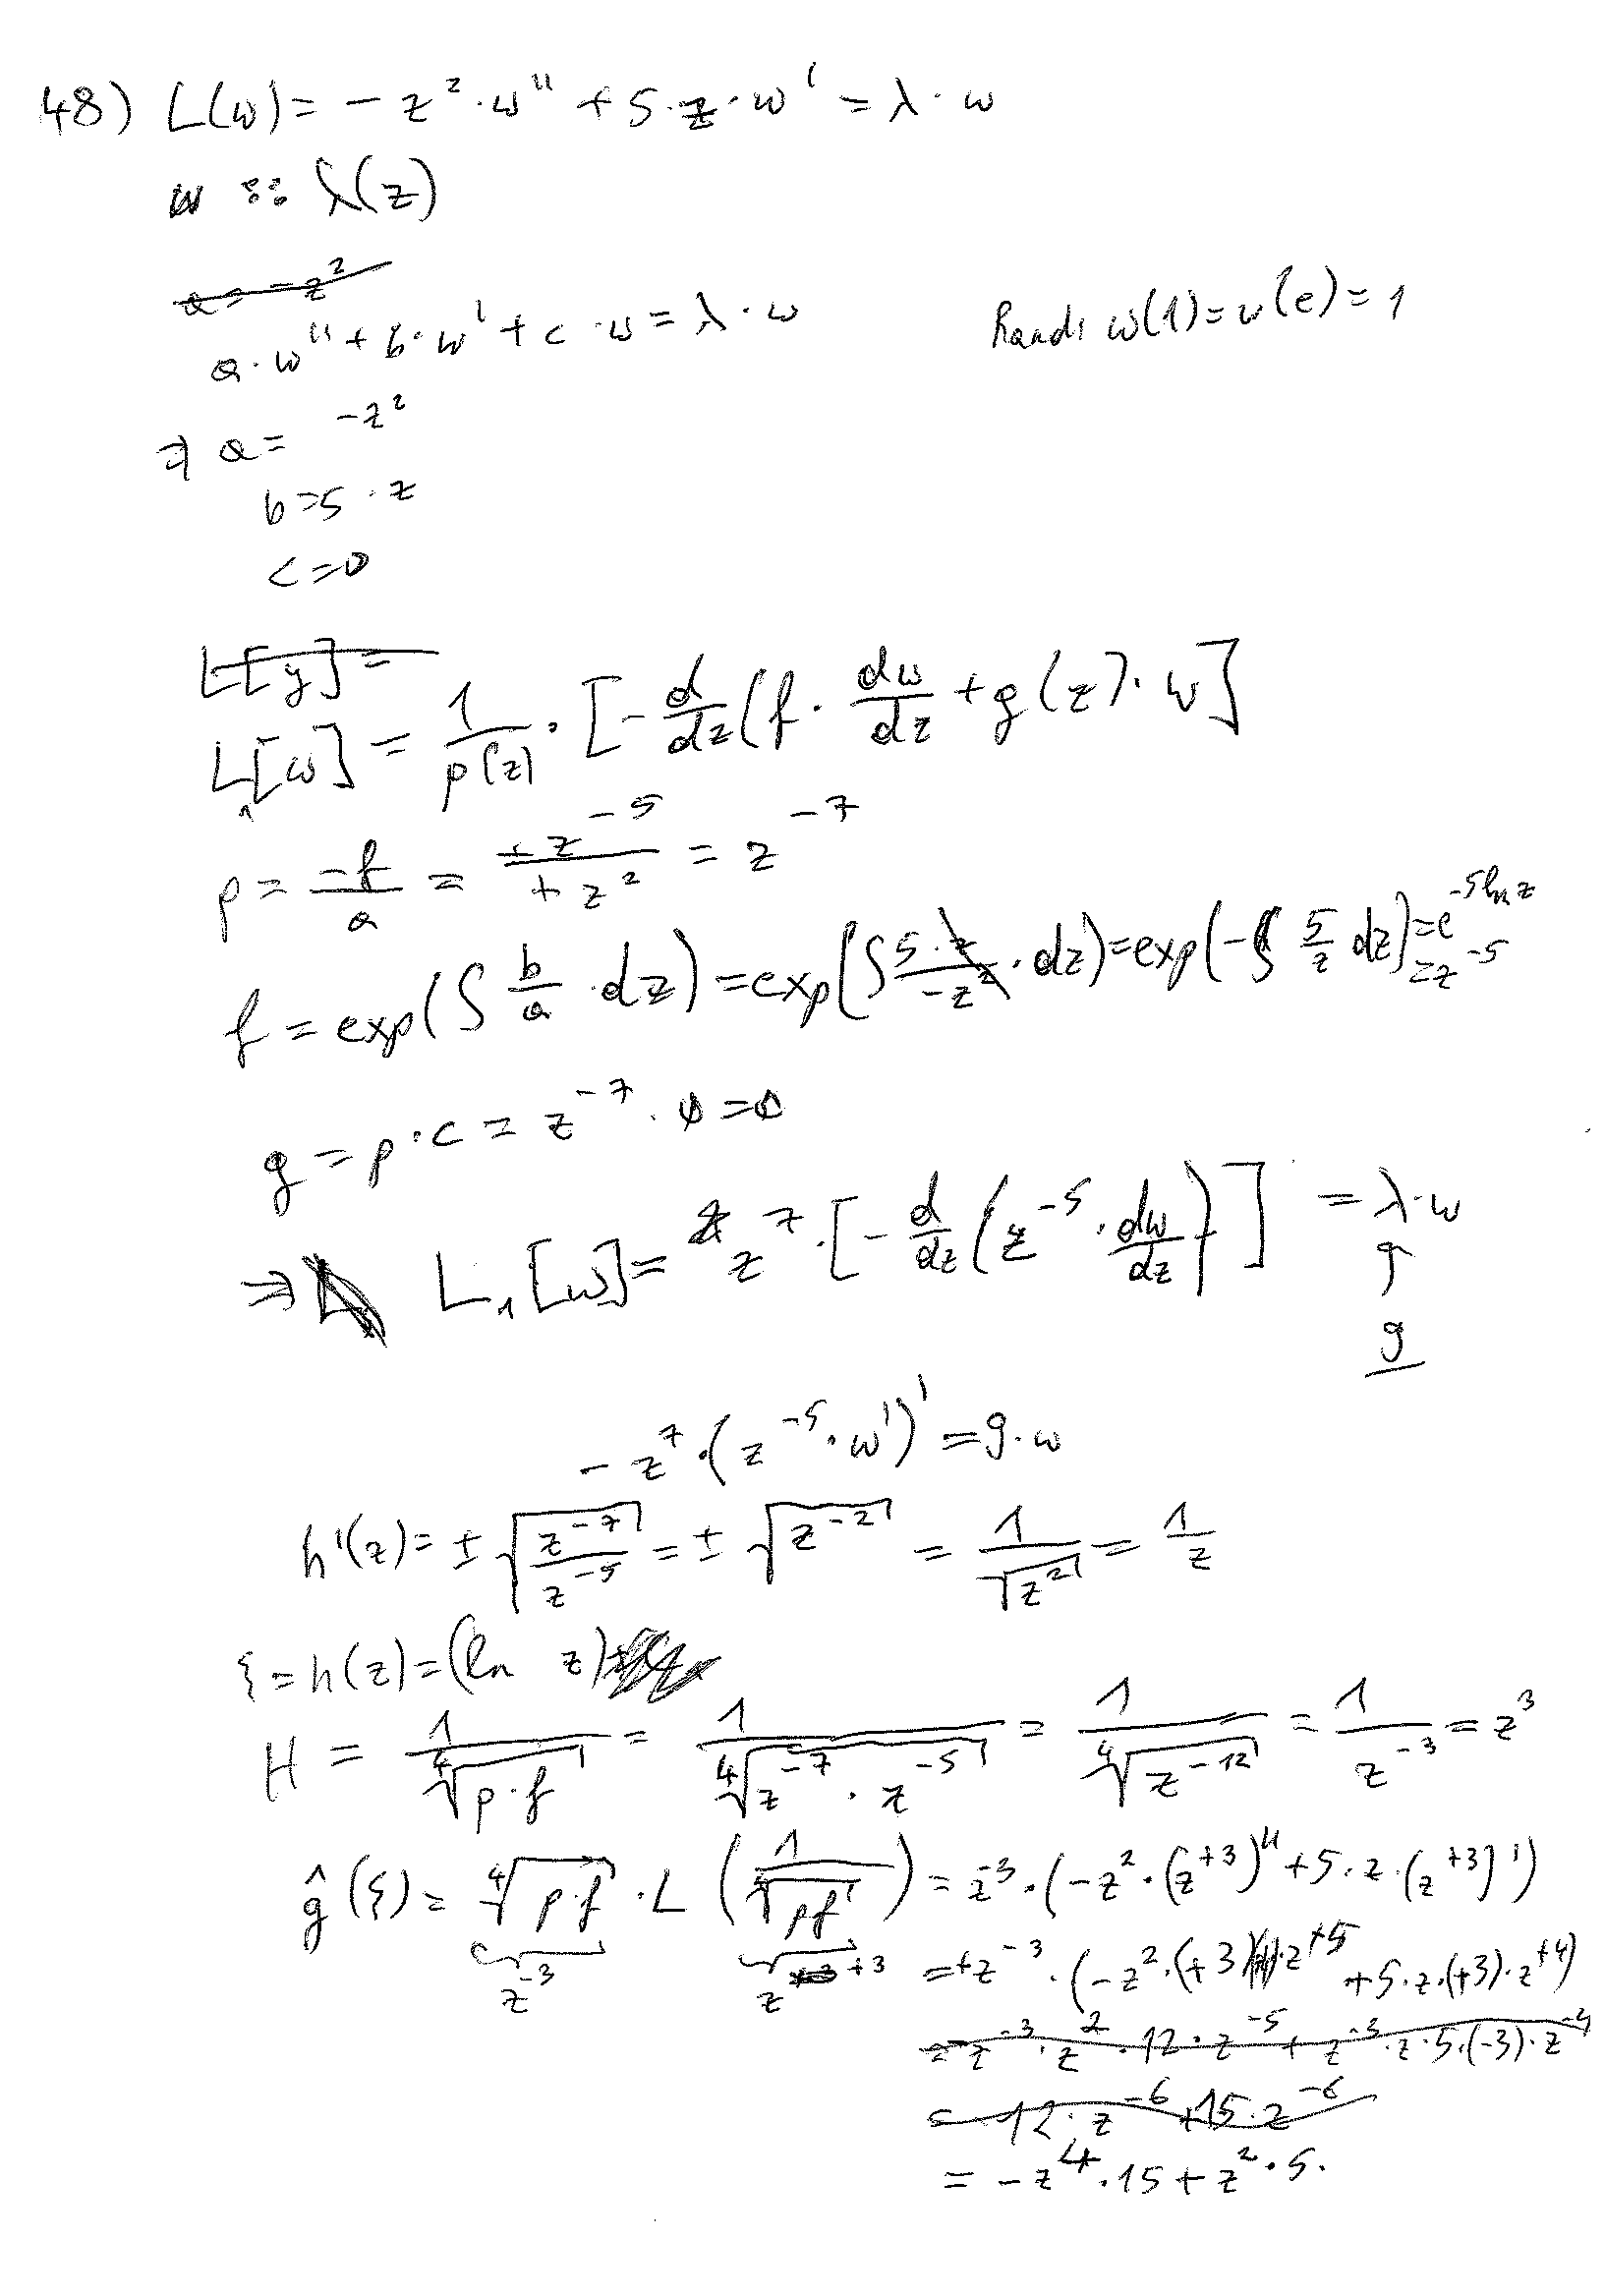 48) L(w) = -z² · w'' + 5 · z · w' = λ · w
w :: λ(z)
a = -z²
a · w'' + b · w' + c · w = λ · w
Rand: w(1) = w(e) = 1
⇒ a = -z²
b = 5 · z
c = 0
L[y] =
L₁[w] = 1/p(z) · [ - d/dz (f · dw/dz + g(z) · w ]
p = -f/a = +z⁻⁵/+z² = z⁻⁷
f = exp(∫ b/a · dz) = exp(∫ 5·z/-z² · dz) = exp(-∫ 5/z dz) = e^(-5 ln z) = z⁻⁵
g = p · c = z⁻⁷ · 0 = 0
⇒ L₁[w] = z⁷ · [ - d/dz (z⁻⁵ · dw/dz) ] = λ · w
↑
9
- z⁷ · (z⁻⁵ · w')' = 9 · w
h'(z) = ± √(z⁻⁷/z⁻⁵) = ± √(z⁻²) = 1/√(z²) = 1/z
ξ = h(z) = (ln z)
H = 1/⁴√(p · f) = 1/⁴√(z⁻⁷ · z⁻⁵) = 1/⁴√(z⁻¹²) = 1/z⁻³ = z³
ĝ(ξ) = ⁴√(p·f) · L (1/⁴√(pf)) = z⁻³ · (-z² · (z⁺³)'' + 5 · z · (z⁺³)')
z⁻³ z⁺³ = +z⁻³ · (-z² · (+3) · z⁺⁵ + 5 · z · (+3) · z⁺⁴)
= -z⁻³ · z² · 12 · z⁻⁵ + z⁻³ · z · 5 · (-3) · z⁻⁴
= -12 · z⁻⁶ + 15 · z⁻⁶
= - z⁴ · 15 + z² · 5 ·